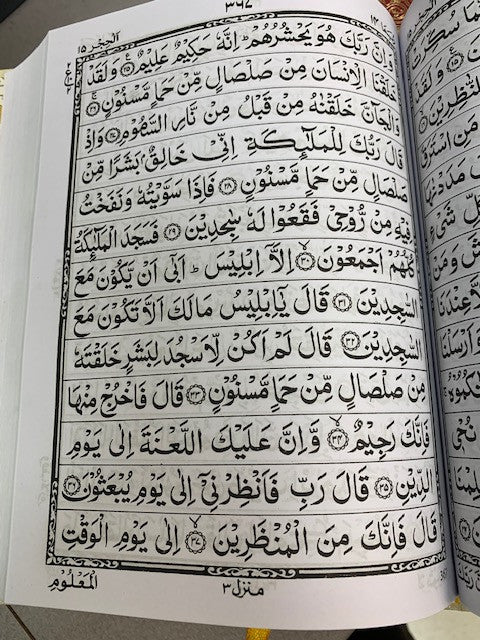 الحجر ١٥
٣٦٧
وَاِنَّ رَبَّكَ هُوَ يَحْشُرُهُمْ ؕ اِنَّهٗ حَكِيْمٌ عَلِيْمٌ ﴿۲۵﴾ وَلَقَدْ
خَلَقْنَا الْاِنْسَانَ مِنْ صَلْصَالٍ مِّنْ حَمَاٍ مَّسْنُوْنٍ ﴿۲۶﴾
وَالْجَآنَّ خَلَقْنٰهُ مِنْ قَبْلُ مِنْ نَّارِ السَّمُوْمِ ﴿۲۷﴾ وَاِذْ
قَالَ رَبُّكَ لِلْمَلٰٓئِكَةِ اِنِّىْ خَالِقٌۢ بَشَرًا مِّنْ
صَلْصَالٍ مِّنْ حَمَاٍ مَّسْنُوْنٍ ﴿۲۸﴾ فَاِذَا سَوَّيْتُهٗ وَنَفَخْتُ
فِيْهِ مِنْ رُّوْحِىْ فَقَعُوْا لَهٗ سٰجِدِيْنَ ﴿۲۹﴾ فَسَجَدَ الْمَلٰٓئِكَةُ
كُلُّهُمْ اَجْمَعُوْنَ ﴿۳۰﴾ اِلَّاۤ اِبْلِيْسَ ؕ اَبٰٓى اَنْ يَّكُوْنَ مَعَ
السّٰجِدِيْنَ ﴿۳۱﴾ قَالَ يٰۤاِبْلِيْسُ مَالَكَ اَلَّا تَكُوْنَ مَعَ
السّٰجِدِيْنَ ﴿۳۲﴾ قَالَ لَمْ اَكُنْ لِّاَسْجُدَ لِبَشَرٍ خَلَقْتَهٗ
مِنْ صَلْصَالٍ مِّنْ حَمَاٍ مَّسْنُوْنٍ ﴿۳۳﴾ قَالَ فَاخْرُجْ مِنْهَا
فَاِنَّكَ رَجِيْمٌ ﴿۳۴﴾ وَّاِنَّ عَلَيْكَ اللَّعْنَةَ اِلٰى يَوْمِ
الدِّيْنِ ﴿۳۵﴾ قَالَ رَبِّ فَاَنْظِرْنِىْۤ اِلٰى يَوْمِ يُبْعَثُوْنَ ﴿۳۶﴾
قَالَ فَاِنَّكَ مِنَ الْمُنْظَرِيْنَ ﴿۳۷﴾ اِلٰى يَوْمِ الْوَقْتِ
الْمَعْلُوْمِ
منزل ٣